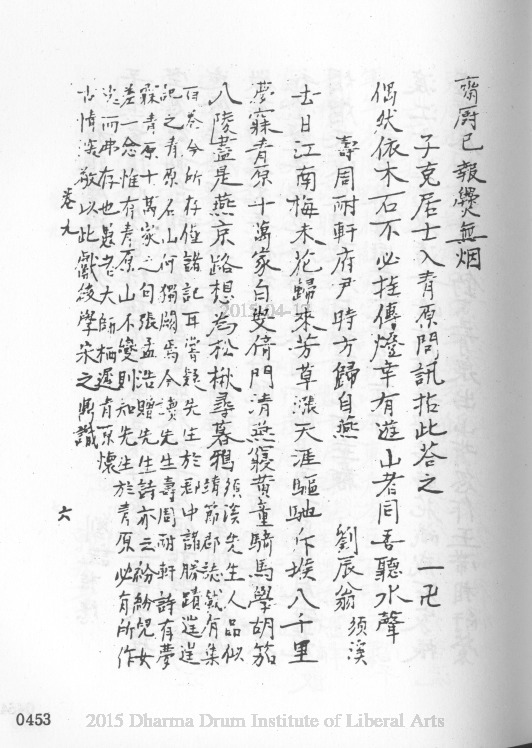 齋廚已報爨無烟
子克居士入青原問訊拈此荅之　一卍
偶然依木石不必挂傳燈幸有遊山者同吾聽水聲
壽周耐軒府尹時方歸自燕　劉辰翁 須溪
去日江南梅未花歸來芳草漲天涯驅馳仆堠八千里
夢寐青原十萬家白叟倚門清燕寢黃童騎馬學胡笳
八陵盡是燕京路想為松楸尋暮鴉 須溪先生人品似
靖節郡誌載有集
百卷今所存僅諸記耳嘗疑先生於郡中諸勝蹟遑遑
記之青原名山何獨闕焉今讀先生壽周耐軒詩有夢
寐青原十萬家之句張孟浩贈先生詩亦云紛紛兒女
差一念惟有青原山不變則知先生於青原必有所作
而弗存也愚者大師栖遲青原懷
古情深敬以此獻後學宋之鼎識
卷九　六
0453
2015 Dharma Drum Institute of Liberal Arts